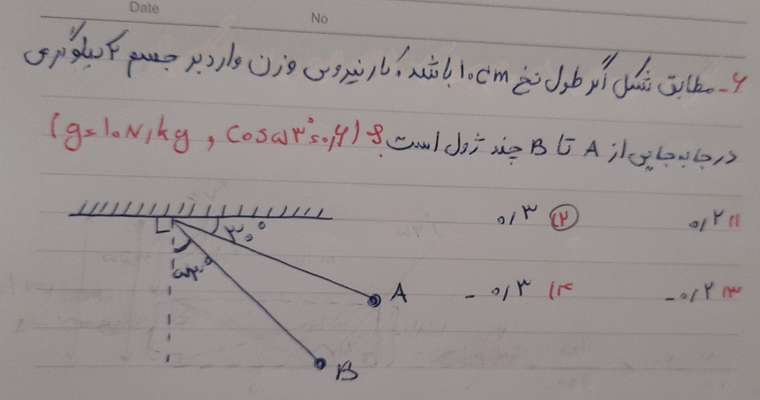 Date
No
۶- مطابق شکل اگر طول نخ ۱۰cm باشد، کار نیروی وزن وارد بر جسم ۲ کیلوگرمی
در جابه‌جایی از A تا B چند ژول است؟ (g=۱۰N/kg , Cos۵۳°=۰٫۶)
۱) ۰/۲ ۲) ۰/۳
۳) -۰/۲ ۴) -۰/۳
۳۰°
۵۳°
A
B